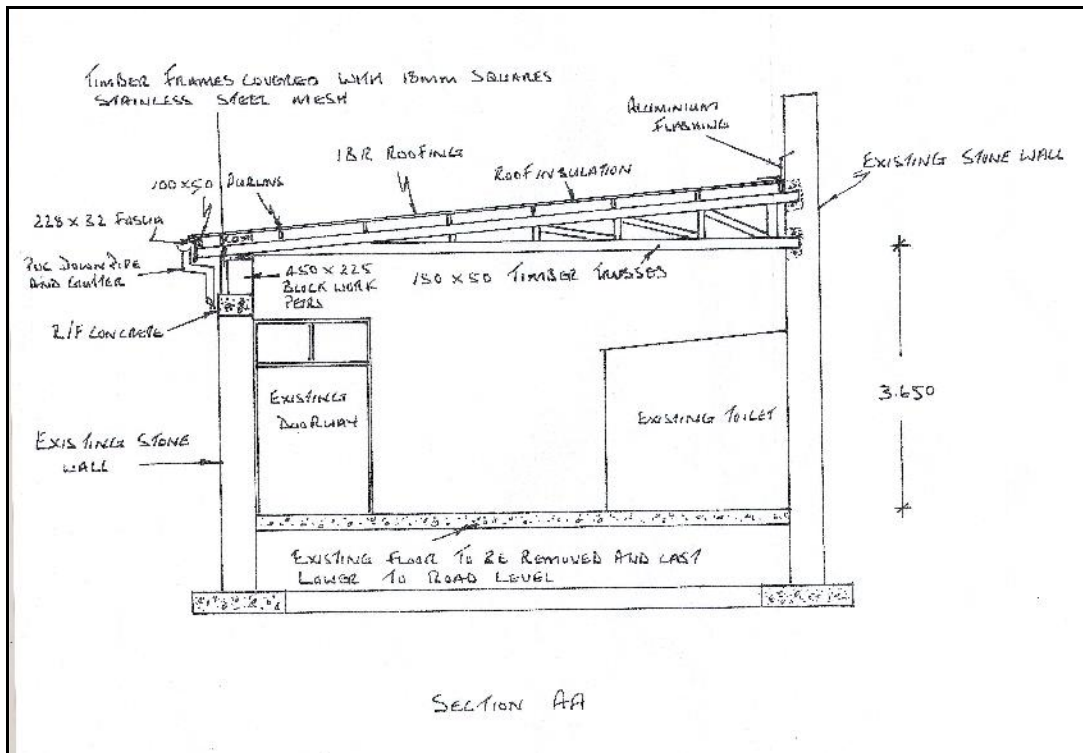 TIMBER FRAMES COVERED WITH 18MM SQUARES
STAINLESS STEEL MESH
ALUMINIUM
FLASHING
IBR ROOFING
ROOF INSULATION
EXISTING STONE WALL
100 x 50 PURLINS
228 x 32 FASCIA
PVC DOWN PIPE
AND GUTTER
450 x 225
BLOCK WORK
PIERS
150 x 50 TIMBER TRUSSES
R/F CONCRETE
3.650
EXISTING
DOORWAY
EXISTING TOILET
EXISTING STONE
WALL
EXISTING FLOOR TO BE REMOVED AND CAST
LOWER TO ROAD LEVEL
SECTION AA